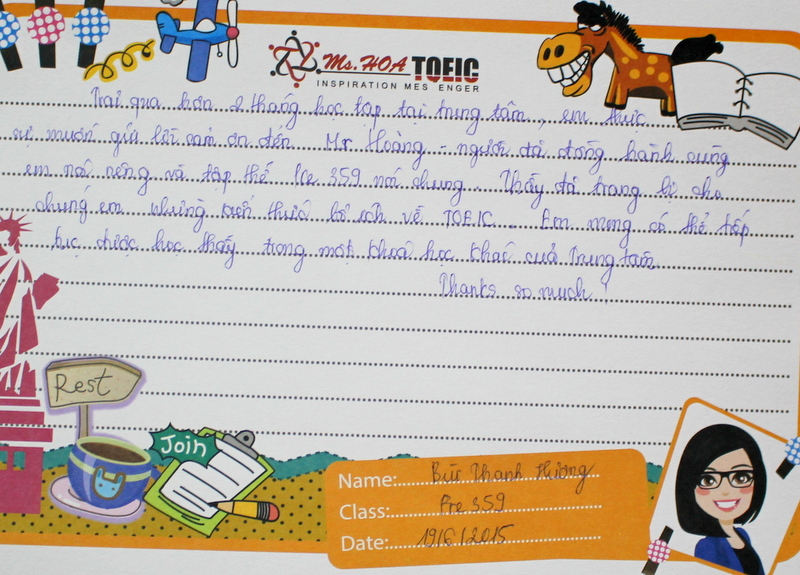 Ms.HOA TOEIC
INSPIRATION MES ENGER
Trải qua hơn 2 tháng học tập tại trung tâm, em thực
sự muốn gửi lời cảm ơn đến Mr Hoàng - người đã đồng hành cùng
em nói riêng và tập thể Pre 359 nói chung. Thầy đã trang bị cho
chúng em những kiến thức bổ ích về TOEIC. Em mong có thể tiếp
tục được học thầy trong một khoá học khác của Trung tâm
Thanks so much!
Rest
Join
Name: Bùi Thanh Hương
Class: Pre 359
Date: 19/6/2015